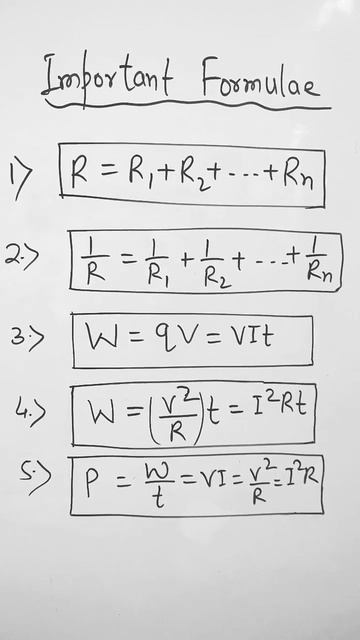 Important Formulae
1) R = R₁+R₂+---+Rn
2.) 1/R = 1/R₁ + 1/R₂ + ---+ 1/Rn
3.) W = qV = VIt
4.) W = (V²/R)t = I²Rt
5.) P = W/t = VI = V²/R = I²R